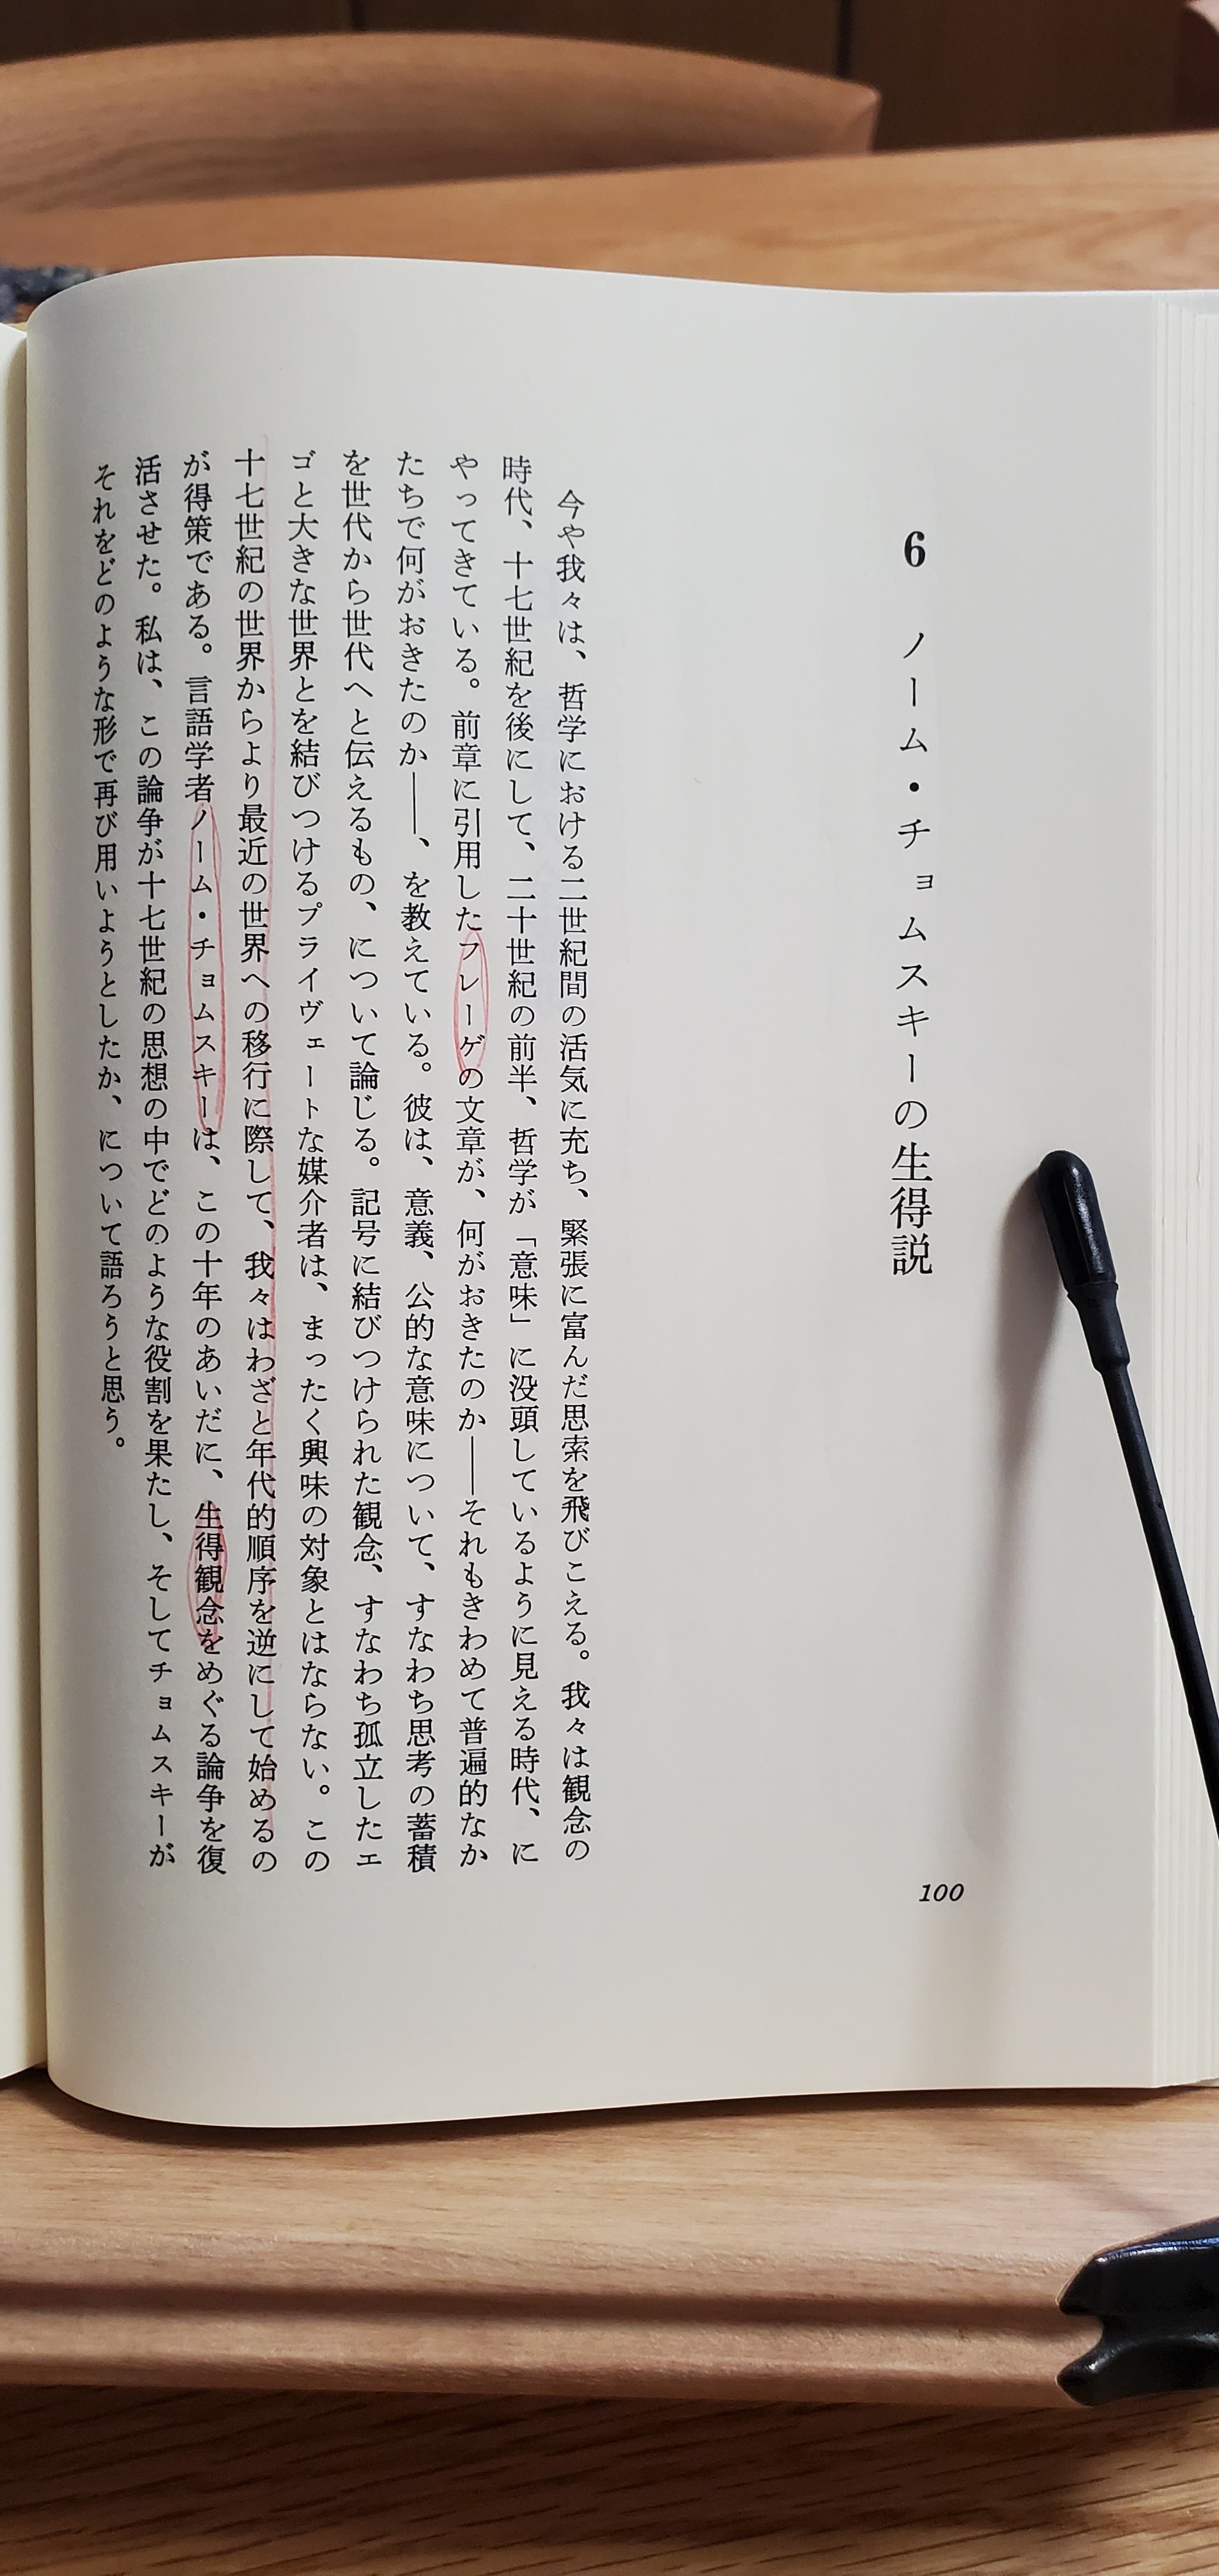 6 ノーム・チョムスキーの生得説
今や我々は、哲学における二世紀間の活気に充ち、緊張に富んだ思索を飛びこえる。我々は観念の
時代、十七世紀を後にして、二十世紀の前半、哲学が「意味」に没頭しているように見える時代、に
やってきている。前章に引用したフレーゲの文章が、何がおきたのか――それもきわめて普遍的なか
たちで何がおきたのか――、を教えている。彼は、意義、公的な意味について、すなわち思考の蓄積
を世代から世代へと伝えるもの、について論じる。記号に結びつけられた観念、すなわち孤立したエ
ゴと大きな世界とを結びつけるプライヴェートな媒介者は、まったく興味の対象とはならない。この
十七世紀の世界からより最近の世界への移行に際して、我々はわざと年代的順序を逆にして始めるの
が得策である。言語学者ノーム・チョムスキーは、この十年のあいだに、生得観念をめぐる論争を復
活させた。私は、この論争が十七世紀の思想の中でどのような役割を果たし、そしてチョムスキーが
それをどのような形で再び用いようとしたか、について語ろうと思う。
100